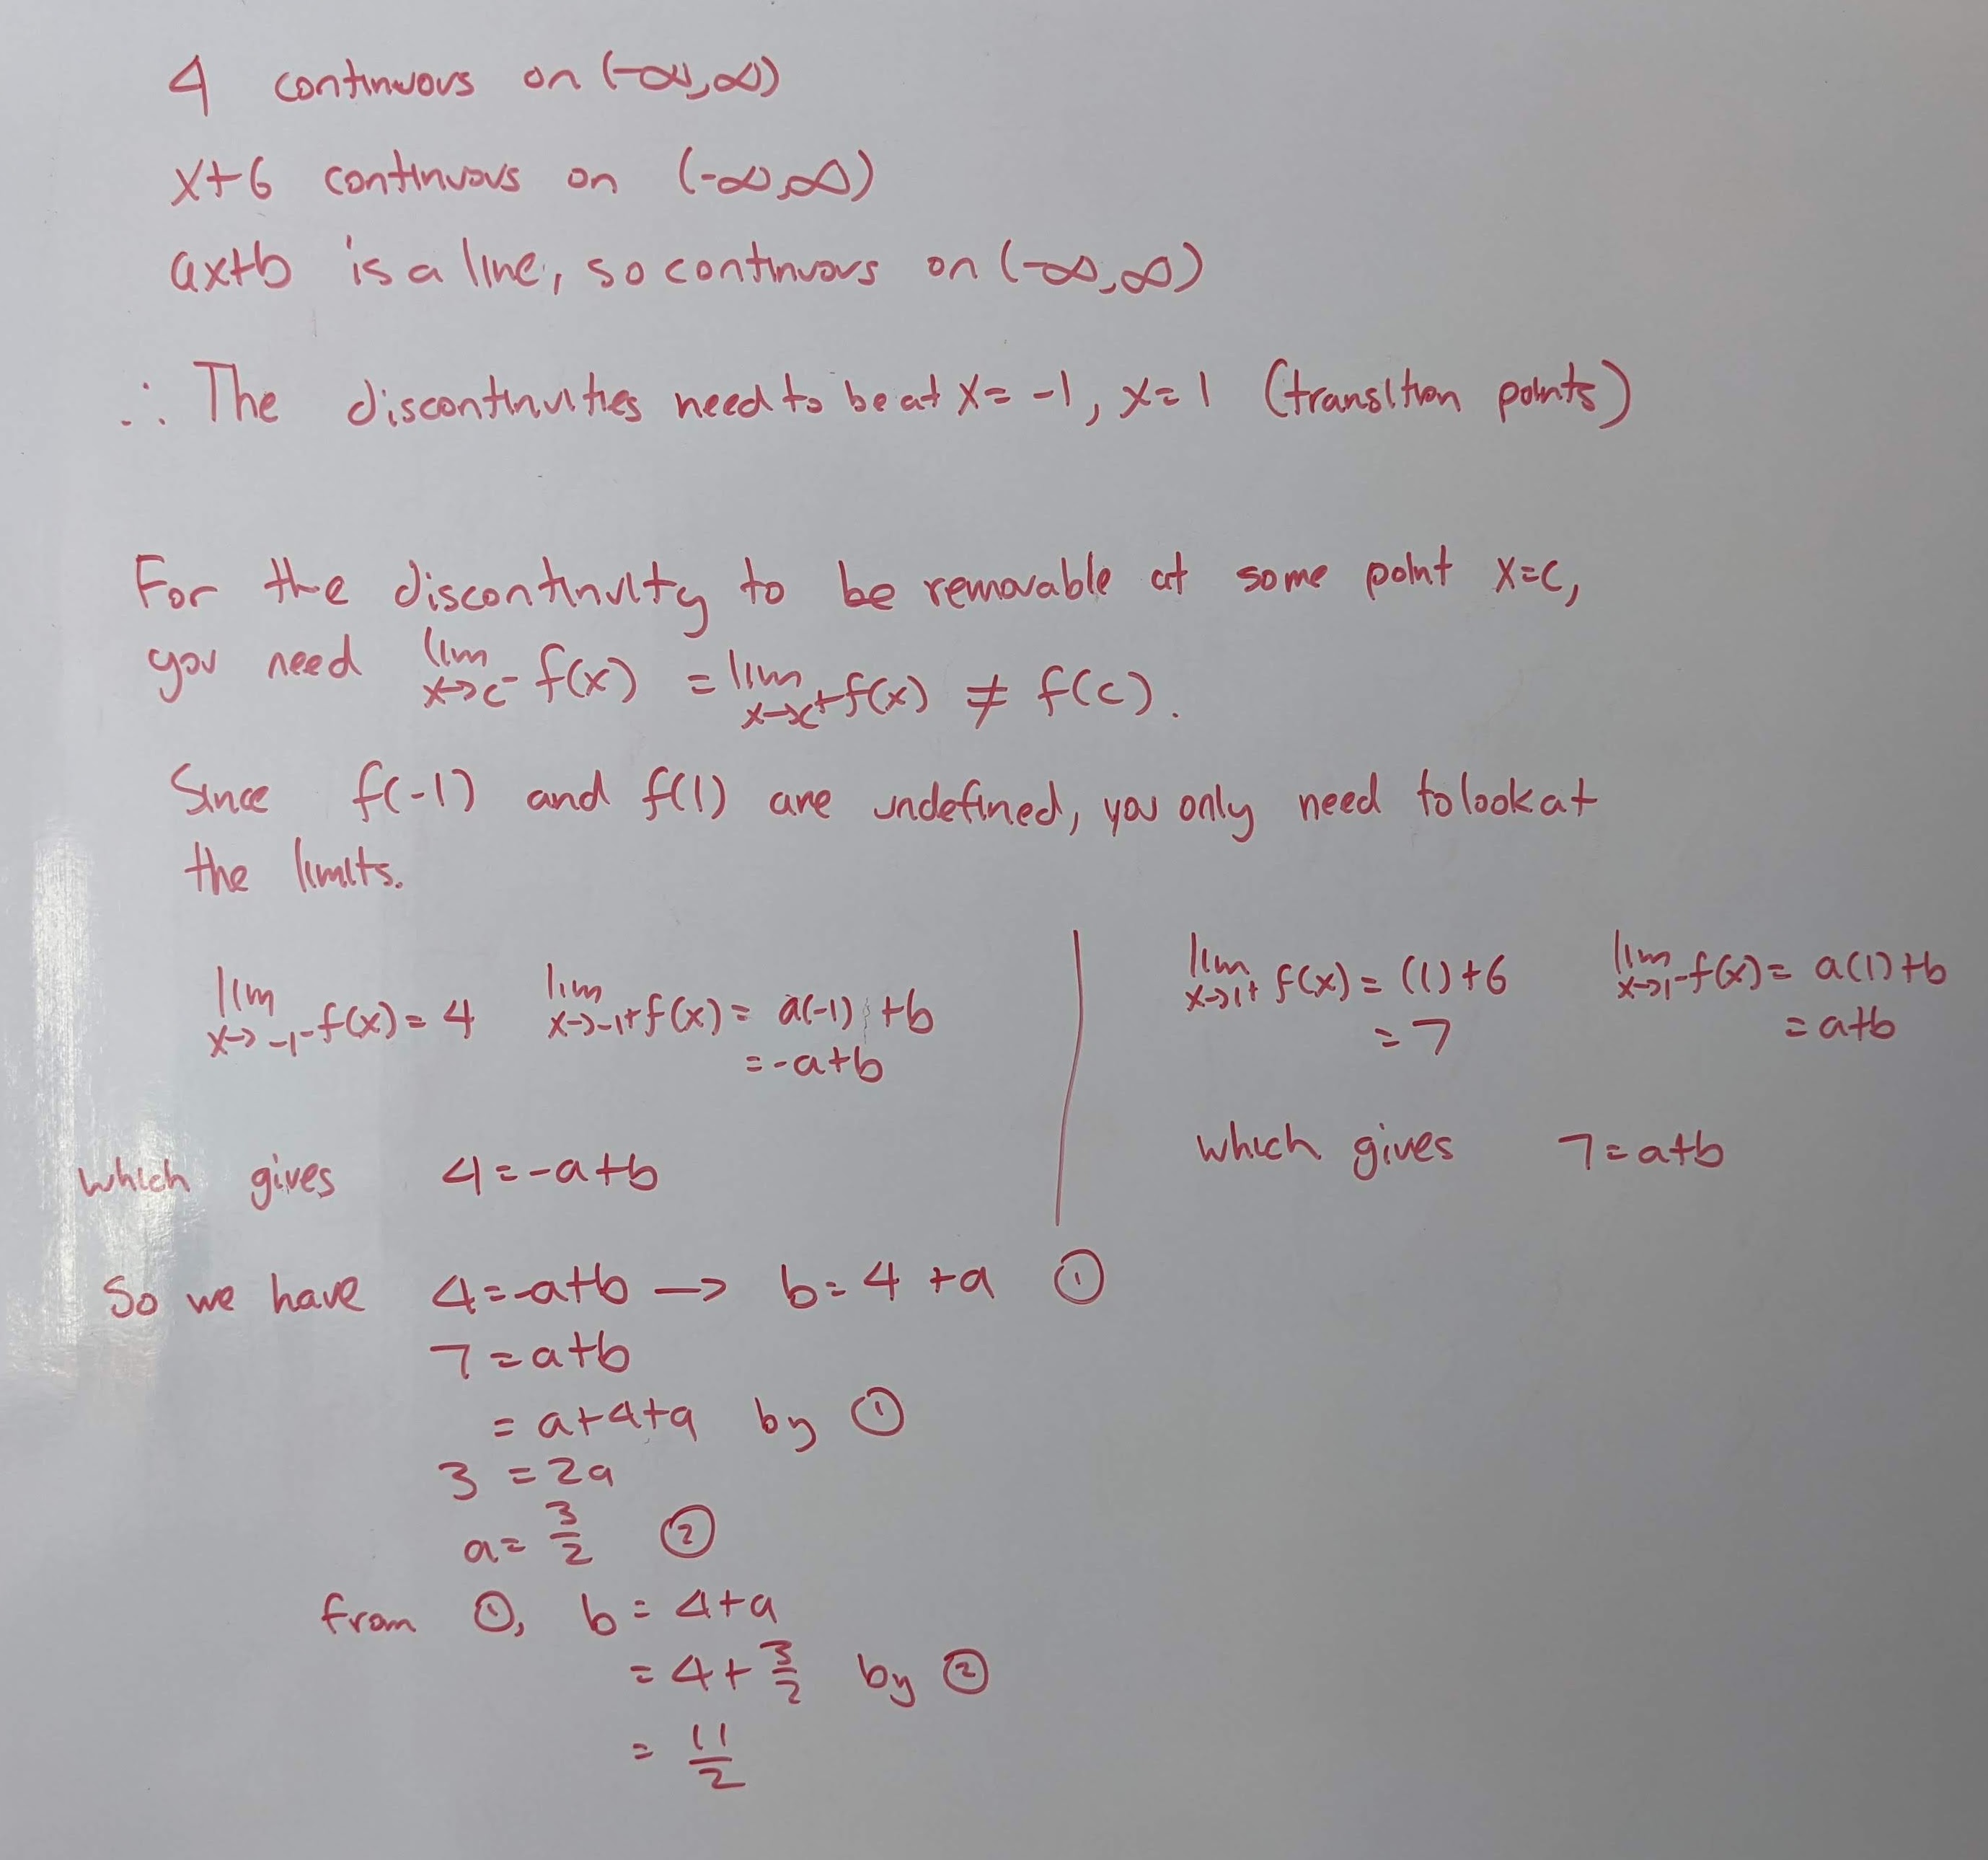 4 continuous on (-∞,∞)
x+6 continuous on (-∞,∞)
ax+b is a line, so continuous on (-∞,∞)
∴ The discontinuities need to be at x= -1, x=1 (transition points)
For the discontinuity to be removable at some point x=c,
you need lim x→c⁻ f(x) = lim x→c⁺ f(x) ≠ f(c).
Since f(-1) and f(1) are undefined, you only need to look at
the limits.
lim x→-1⁻ f(x) = 4 lim x→-1⁺ f(x) = a(-1) +b
= -a+b
which gives 4=-a+b
lim x→1⁺ f(x) = (1)+6 lim x→1⁻ f(x) = a(1)+b
= 7 = a+b
which gives 7=a+b
So we have 4=-a+b → b=4+a ①
7=a+b
= a+4+a by ①
3 =2a
a= 3/2 ②
from ①, b= 4+a
= 4+ 3/2 by ②
= 11/2